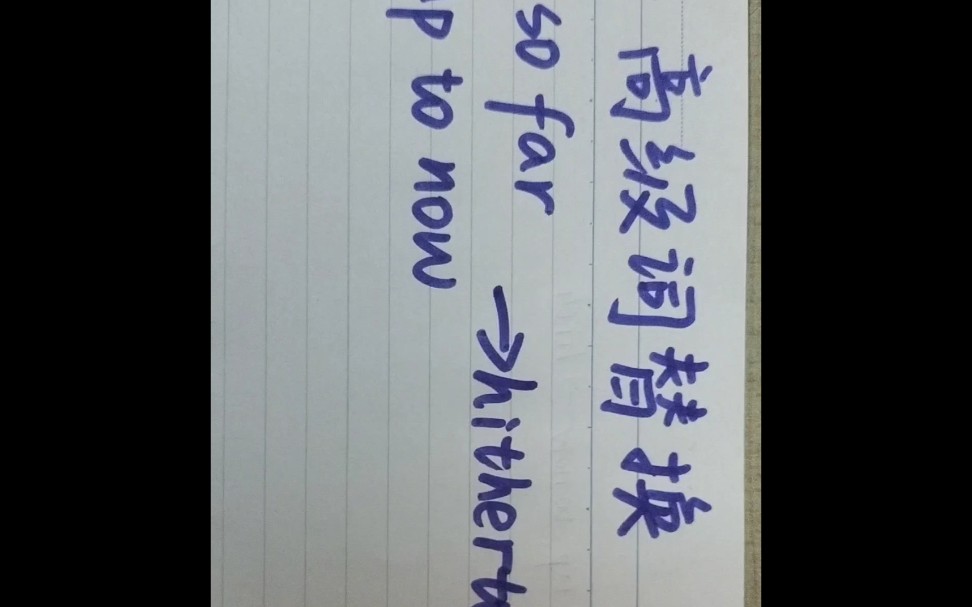 高级词替换
so far
→hithert
p to now